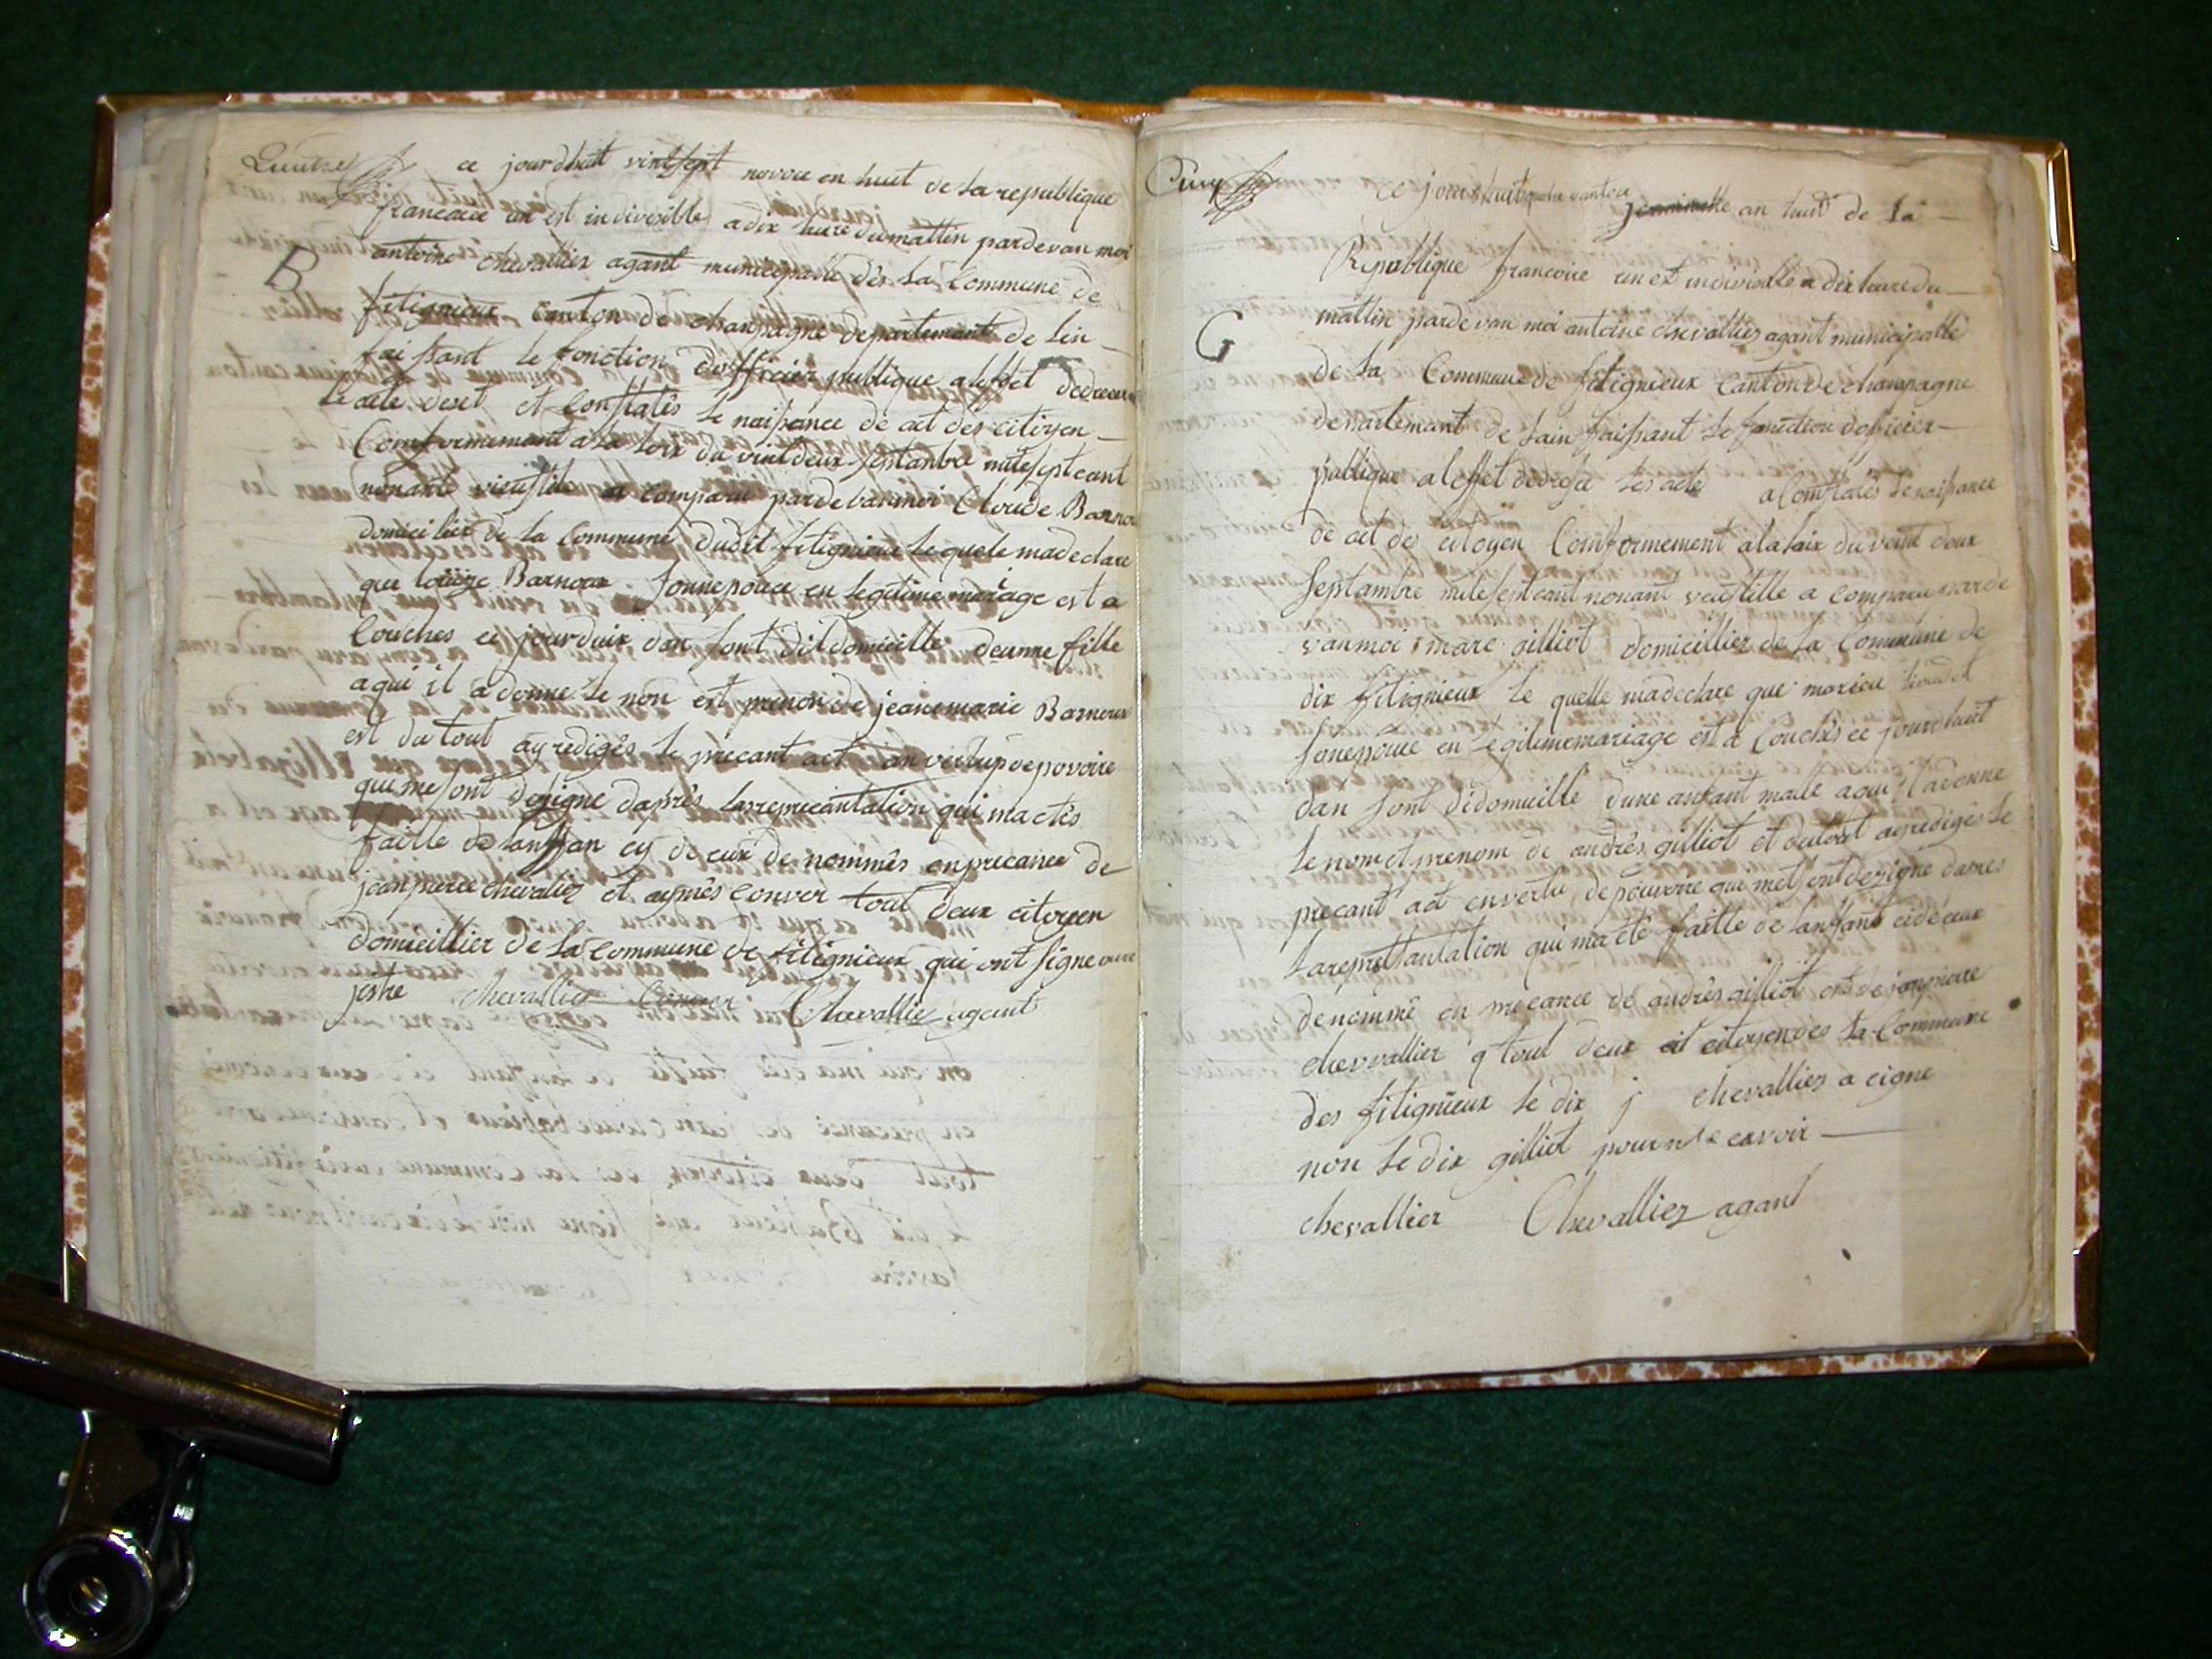 ce jourdhuit vintsept novose en huit de la republique
francaice un est indivisible a dix heure du mattin pardevan moi
B
antoine chevallier agant municipalle des la commune de
fitignieux canton de chanpagne departemant de lin
faissant le fonction dofficier publique a leffet
le acte deset et constatés le naissance de act des citoyen
Comformemant a la loix du vint deux septanbre mile sept cant
nonante vieustile a comparu pardevanmoi Cloude Barnou
domicilier de la commune dudit fitignieux le quele madeclare
que louize Barnoux sonnepouce en legitime mariage est a
Couches ce jourduix dan sont dit domicille deunne fille
a qui il a donne le non est prenon de jeanemarie Barnoux
est du tout ay redigés le precant act an vertup de povoire
qui me sont dezigne daprés lareprecantation qui ma etés
faitte de lanffan cy de ceux de nommés en precance de
jeanpierre chevalier et aymés conver tout deux citoyen
domicillier de la commune de fitignieux qui ont signe
chevallier conver Chevallier agant
Cinq
ce jourdhuit an huit de la
Republique francoice un et indivisible a dix heure du
mattin pardevan moi antoine chevallier agant municipalle
G
de la Commune de fitignieux Canton de champagne
departemant de lain faissant le fonction doficier
publique a leffet les acte a Constatés le naissance
de act des citoyen Comformement a la loix du vent deux
septambre mile sept cant nonant veustille a comparu parde
vanmoi marc gilliot domicillier de la Commune de
dix fitignieux le quelle madeclare que marieu
sonepouce en legitimemariage est a Couchés ce jourdhuit
dan sont didomicille dune anfant malle a qui il adonne
le nom et prenom de andrés gilliot et du tout ay redigés le
precant act en vertu de pouvoire qui met sont dezigne
la qui ma été faitte de lanfant ci de ceux
denommé en precance de andrés gilliot et de janpierre
chevvallier tout deux citoyen des la Commune
des fitignieux le dix j chevallier a cigne
non le dix gilliot pour ne cavoir
chevallier Chevallier agant